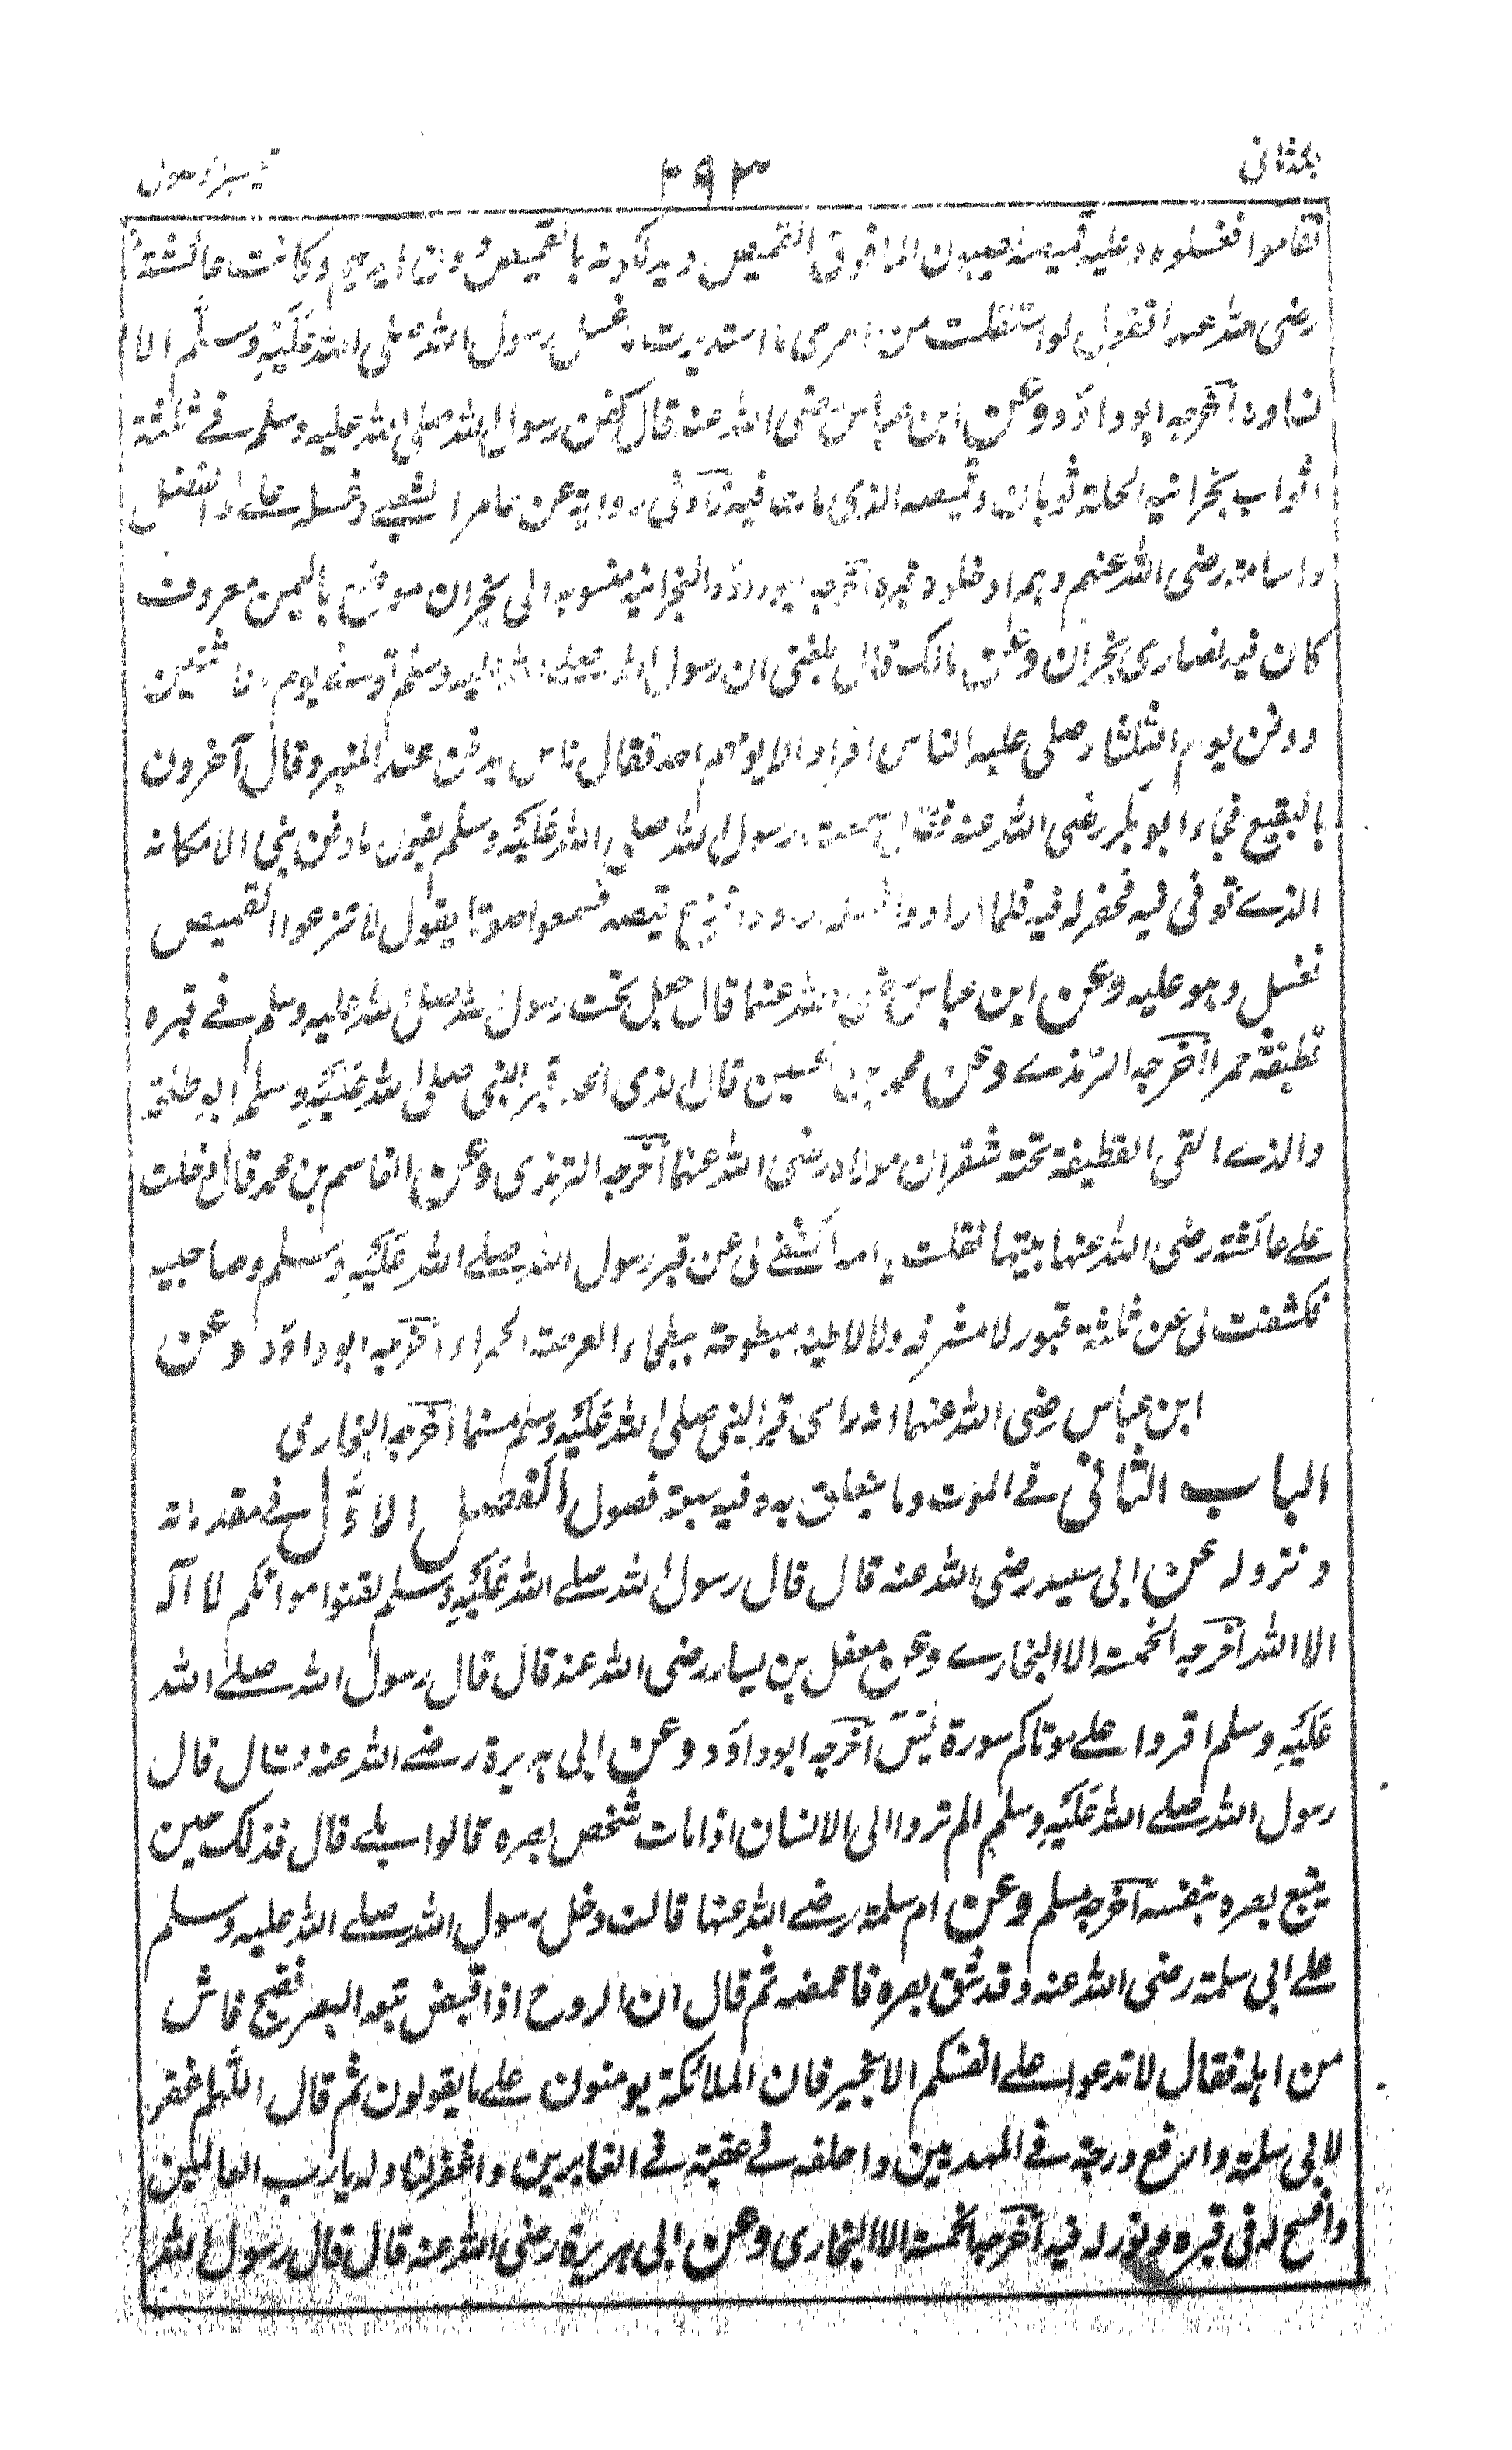 جلد ثانی ۲۹۳ تیسیر الوصول
فقاموا فغسلوه وعليه قميصه يصبون الماء فوق القميص ويدلكونه بالقميص دون ايديهم وكانت عائشة
رضى الله عنها تقول لو استقبلت من امرى ما استدبرت ما غسل رسول الله صلى الله عليه وسلم الا
نساوه اخرجه ابو داؤد وعن ابن عباس رضى الله عنه قال كفن رسول الله صلى الله عليه وسلم فے ثلثة
اثواب نجرانيه الحلة ثوبان وقميصه الذى مات فيه وفى رواية عن عامر الشعبے وغسله علے والفضل
واسامة رضى الله عنهم وہم ادخلوه قبره اخرجه ابو داؤد والنجرانيه منسوبه الى نجران موضع باليمن معروف
كان فيه نصارى نجران وعن مالك قال بلغنى ان رسول الله صلے الله عليه وسلم توفے يوم الاثنين
ودفن يوم الثلثاء وصلى عليه الناس افرادا لا يومهم احد فقال ناس يدفن عند المنبر وقال آخرون
بالبقيع فجاء ابو بكر رضى الله عنه فقال سمعت رسول الله صلى الله عليه وسلم يقول ما دفن نبى الا مكانه
الذے توفى فيه فحفر له فيه فلما ارادوا غسله ارادوا نزع قميصه فسمعوا صوتا يقول لا تنزعوا القميص
فغسل وہو عليه وعن ابن عباس رضى الله عنهما قال جعل تحت رسول الله صلى الله عليه وسلم فے قبره
قطيفة حمرا اخرجه الترمذے وعن محمد بن الحسين قال الذى الحد قبر النبى صلى الله عليه وسلم ابو طلحة
والذے القى القطيفة تحته شقران مولاه رضى الله عنهما اخرجه الترمذى وعن القاسم بن محمد قال دخلت
علے عائشة رضى الله عنها بيتها فقلت يا امه اكشفے لى عن قبر رسول الله صلے الله عليه وسلم وصاحبيه
فكشفت لى عن ثلثة قبور لا مشرفه ولا لاطية مبطوحة ببطحاء العرصة الحمراء اخرجه ابو داؤد وعن
ابن عباس رضى الله عنهما انه راى قبر النبى صلى الله عليه وسلم مسنما اخرجه البخارى
الباب الثانى فے الموت وما يتعلق به وفيه سبعة فصول الفصل الاوّل فے مقدماته
ونزوله عن ابى سعيد رضى الله عنه قال قال رسول الله صلے الله عليه وسلم لقنوا موتاكم لا اله
الا الله اخرجه الخمسة الا البخارے وعن معقل بن يسار رضى الله عنه قال قال رسول الله صلے الله
عليه وسلم اقروا علے موتاكم سورة يٰسٓ اخرجه ابو داؤد وعن ابى ہريرة رضے الله عنه قال قال
رسول الله صلے الله عليه وسلم الم تروا الى الانسان اذا مات شخص بصره قالوا بلے قال فذلك حين
يتبع بصره بنفسه اخرجه مسلم وعن ام سلمة رضے الله عنها قالت دخل رسول الله صلے الله عليه وسلم
علے ابى سلمة رضى الله عنه وقد شق بصره فاغمضه ثم قال ان الروح اذا قبض تبعه البصر فضج ناس
من اہله فقال لا تدعوا علے انفسكم الا بخير فان الملائكة يومنون علے ما يقولون ثم قال اللهم اغفر
لابى سلمة وارفع درجته فے المهديين واخلفه فے عقبة فے الغابرين واغفر لنا وله يا رب العالمين
وافسح له فى قبره ونور له فيه اخرجه الخمسة الا البخارى وعن ابى ہريرة رضى الله عنه قال قال رسول الله